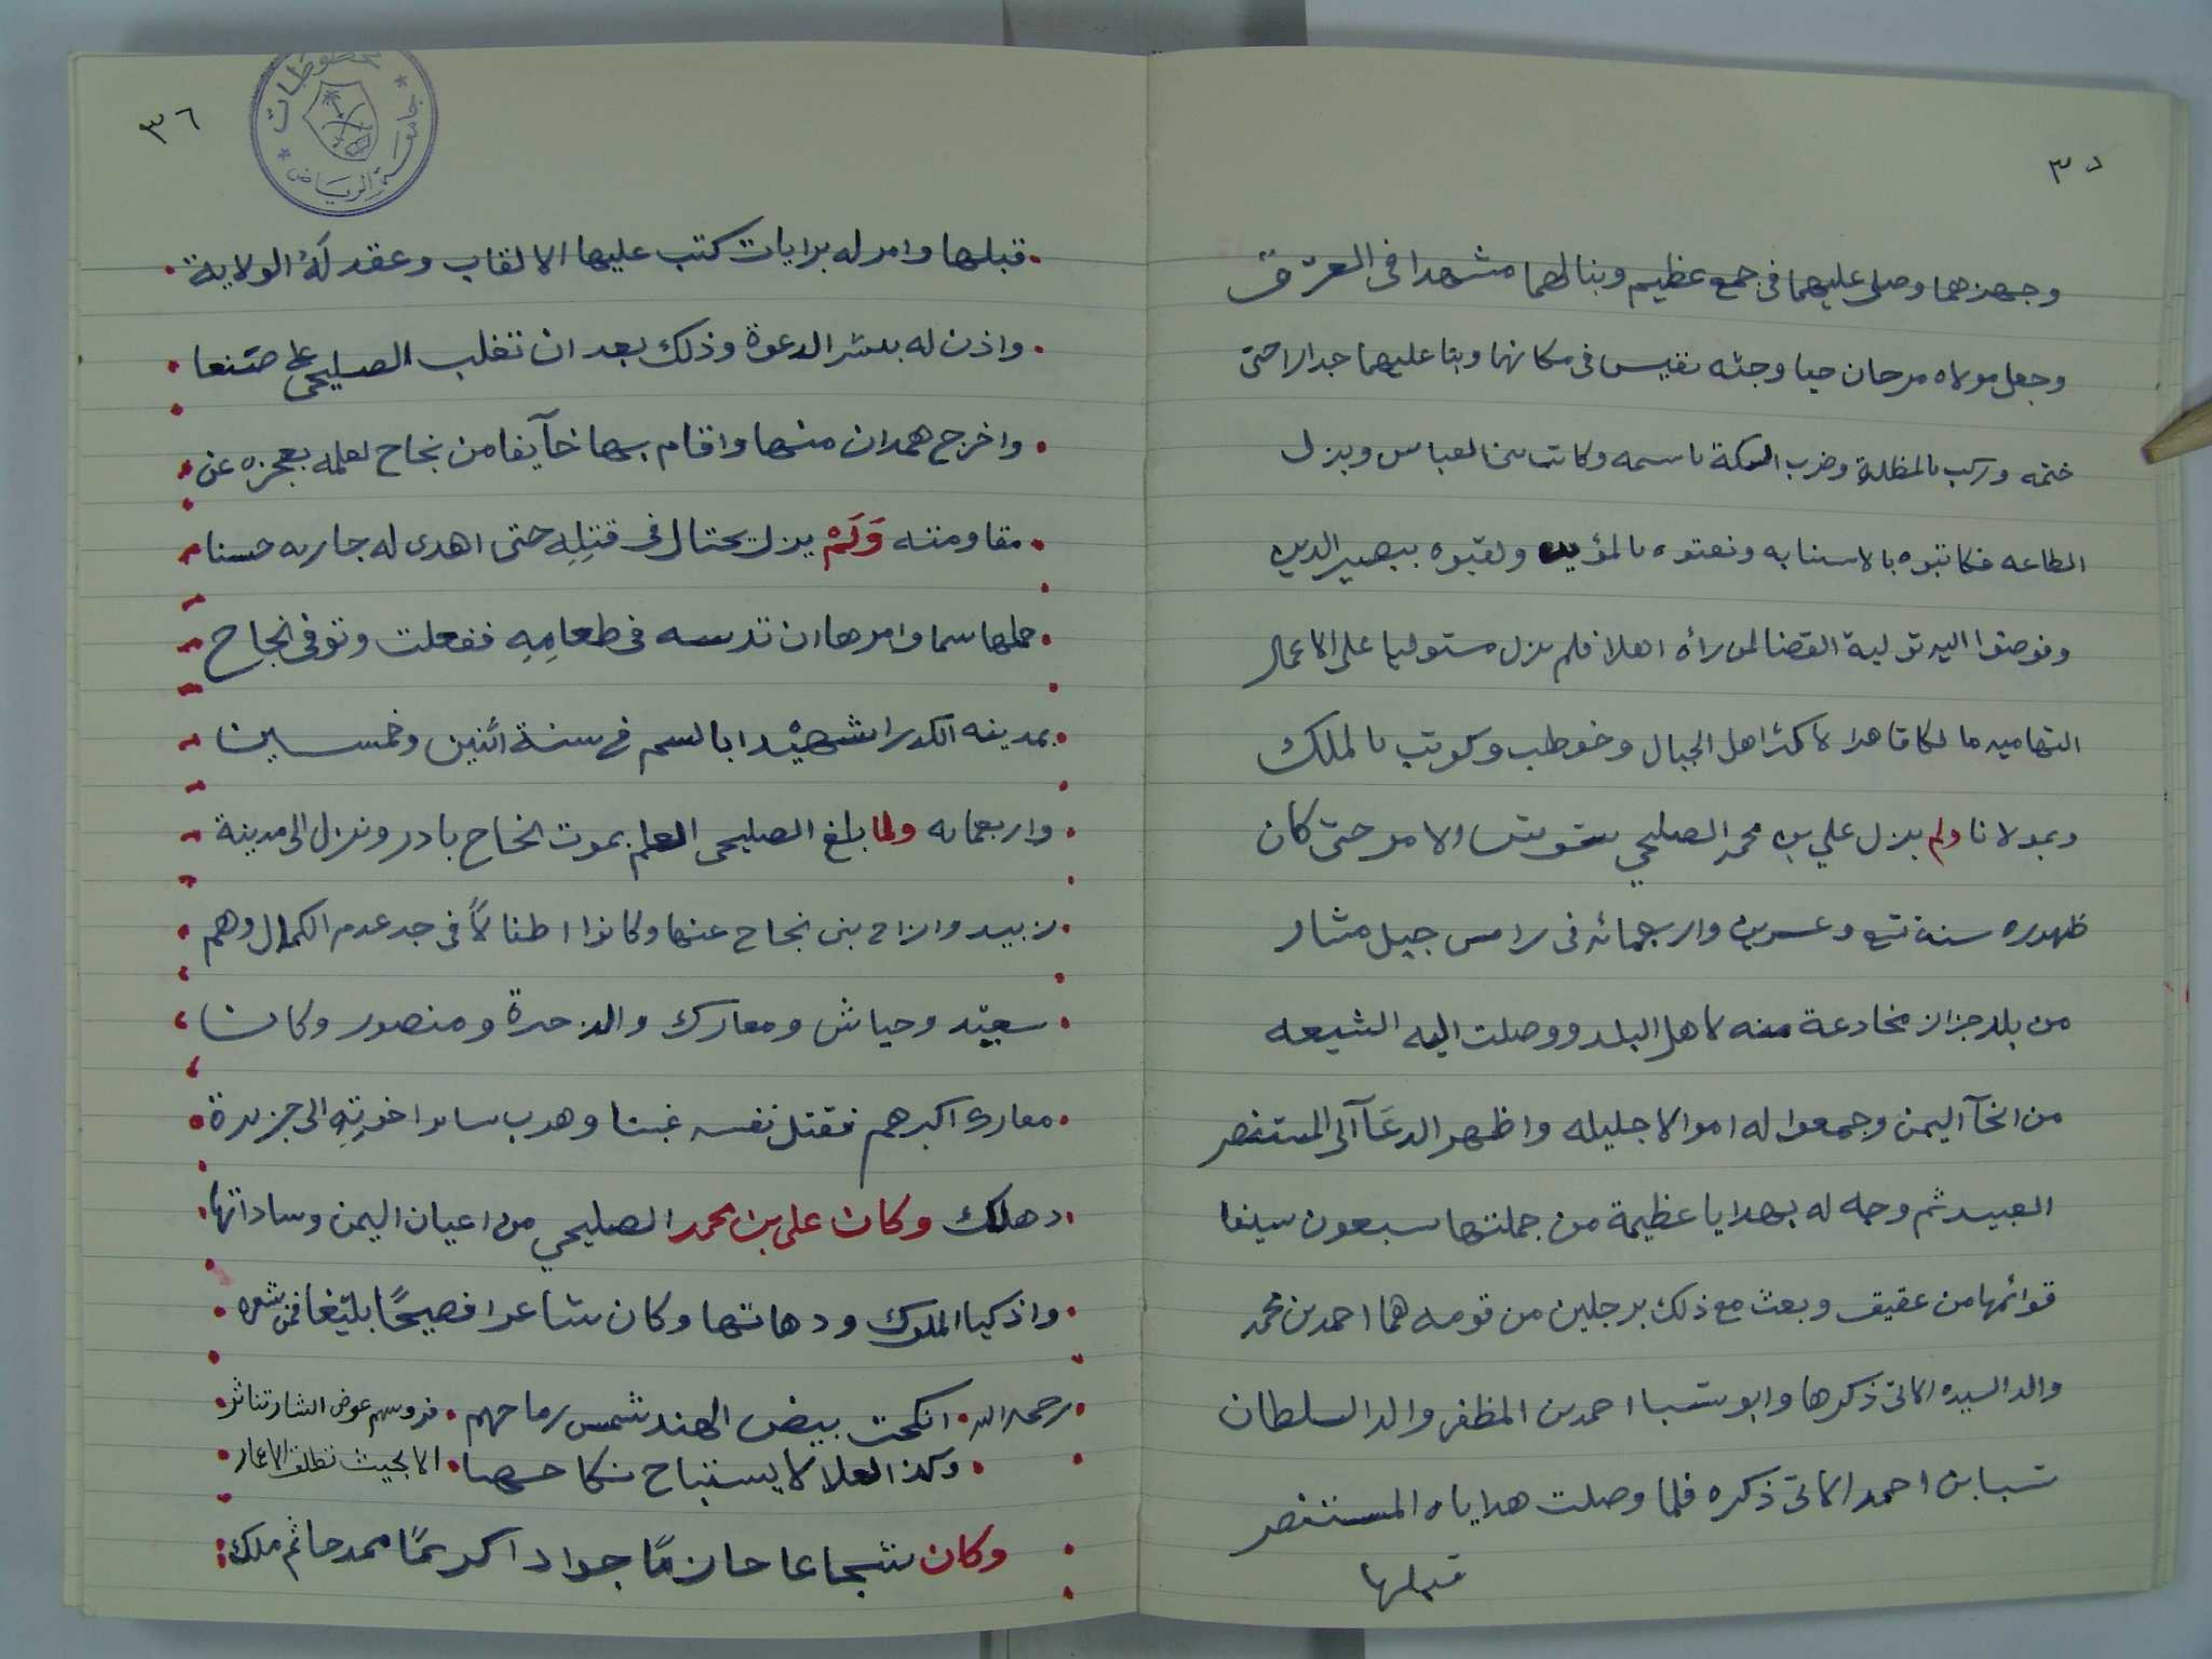 ٣٥
وجهزهما وصلى عليهما فى جمع عظيم وبنا لهما مشهدا فى العرق
وجعل مولاه مرجان حيا وجثه نفيس فى مكانهما وبنا عليهما جدارا حتى
ختمه وركب بالمظلة وضرب السكة باسمه وكاتب بنى العباس وبذل
الطاعه فكاتبوه بالاستنابه ونعتوه بالمؤيد ولقبوه بنصير الدين
وفوضوا اليه تولية القضا لمن رأه اهلا فلم يزل مستوليا على الاعمال
التهاميه مالكا قاهرا لاكثر اهل الجبال وخوطب وكوتب بالملك
وبمولانا ولم يزل علي بن محمد الصليحي الامر حتى كان
ظهوره سنة تسع وعشرين واربعمائه فى راس جبل مشار
من بلد حراز مخادعة منه لاهل البلد ووصلت اليه الشيعه
من انحآ اليمن وجمعوا له اموالا جليله واظهر الدعآ الى المستنصر
العبيد ثم وجه له بهدايا عظيمة من جملتها سبعون سيفا
قوائمها من عقيق وبعث مع ذلك برجلين من قومه هما احمد بن محمد
والد السيده الاتى ذكرها وابو سبا احمد بن المظفر والد السلطان
سبا بن احمد الاتى ذكره فلما وصلت هداياه المستنصر
قبلها
٣٦
مخطوطات
جامعة الرياض
قبلها وامر له برايات كتب عليها الالقاب وعقد لهُ الولاية
واذن له بنشر الدعوة وذلك بعد ان تغلب الصليحى على صنعا
واخرج همدان منها واقام بها خآيفا من نجاح لعلمه بعجزه عن
مقاومته وَلَمْ يزل يحتال فى قتلِهِ حتى اهدى له جاريه حسنا
حملها سما وامرها ان تدسه فى طعامِهِ ففعلت وتوفى نجاح
بمدينه الكدرا شهيْدا بالسم فى سنة اثنين وخمسين
واربعمايه ولما بلغ الصليحى العلم بموت نجاح بادر ونزل الى مدينة
زبيد وازاح بنى نجاح عنها وكانوا اطفالاً فى حد عدم الكمال وهم
سعيد وجياش ومعارك والذخرة ومنصور وكان
معارك اكبرهم فقتل نفسه غبنا وهرب ساير اخوتِهِ الى جزيرة
دهلك وكان على بن محمد الصليحي من اعيان اليمن وساداتها
واذكيا الملوك ودهاتها وكان شاعرا فصيحًا بليغا فمن شعره
رحمه الله انكحت بيض الهند سمر رماحهم فروسهم عوض النثار تناثر
وكذا العلا لا يستباح نكاحها الا بحيث تطلق الاعمار
وكان شجاعا حازمًا جوادا كريمًا حاتم ملك